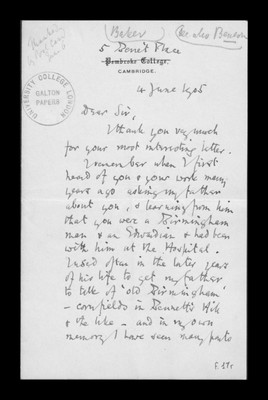 (Baker)
(See also Benson
5 Benet Place
Pembroke College,
CAMBRIDGE.
UNIVERSITY COLLEGE LONDON
GALTON
PAPERS
4 June 1906
Dear Sir,
I thank you very much
for your most interesting letter.
I remember when I first
heard of you & your work many
years ago asking my father
about you, & learning from him
that you were a Birmingham
man & an Edwardian & had been
with him at the Hospital.
I used often in the later years
of his life to get my father
to talk of 'old Birmingham'
- cornfields in Bennett's Hill
& the like - and in my own
memory I have seen many parts
F. 17r